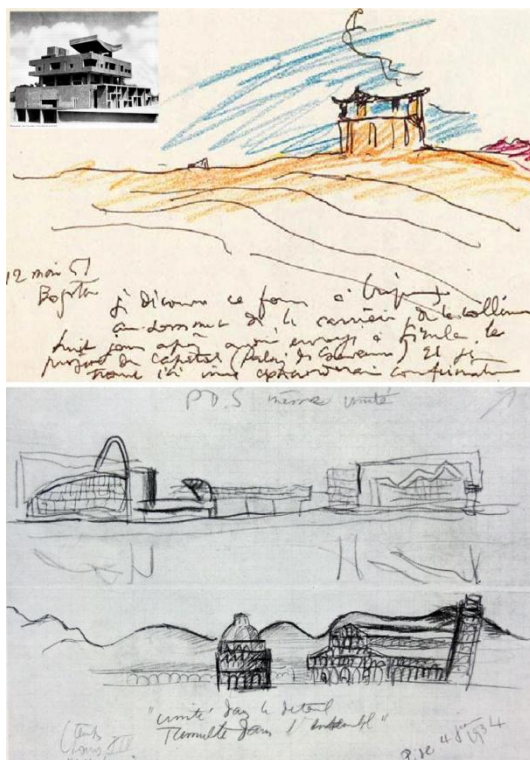 12 mai 51
Bogota
je découvre ce four à briques
au sommet de la carrière, de la colline
huit jours après avoir envoyé à Simla les
projet du Capitol (Palais du Gouverneur) Et je
trouve ici une extraordinaire confirmation
P D S même unité
"unité dans le détail
Tumulte dans l'ensemble"
Pise 4 juin 1934